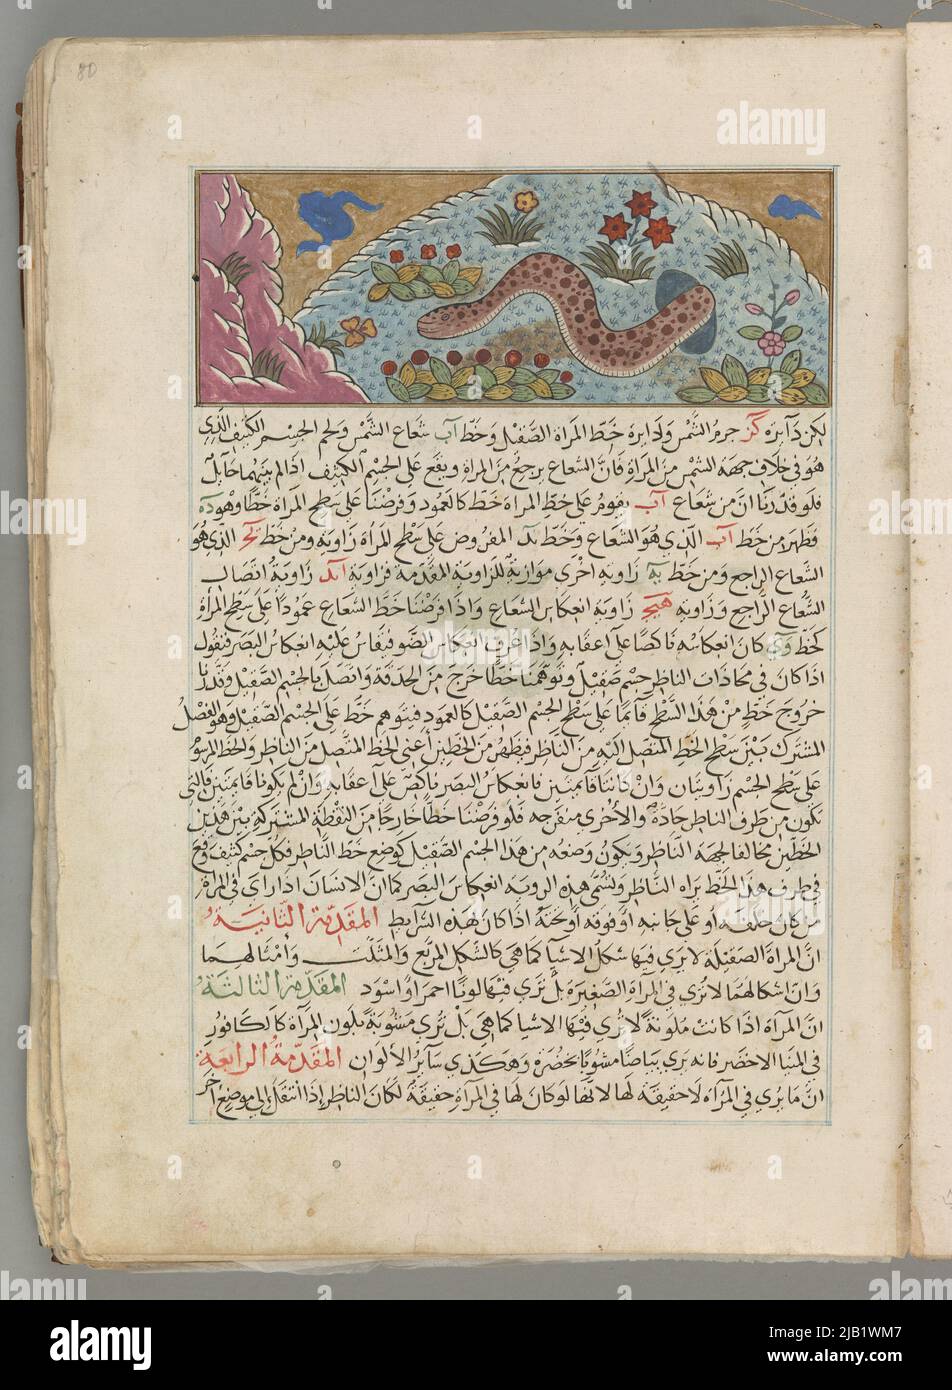 80
لكن دآيره كز جرم الشمس ولدآيرة خط المرآة الصقيل وخط آب شعاع الشمس ولجم الجسم الكثيف الذي
هو في خلاف جهة الشمس من المرآة فان الشعاع يرجع من المرآة ويقع على الجسم الكثيف اذا لم يكن بينهما حآيل
فلو قدرنا ان من شعاع آب يقوم على خط المرآة خط كالعمود وفرضنا على سطح المرآة خطا وهو ده
فظهر من خط آب الذي هو الشعاع وخط بد المفروض على سطح المرآة زاوية ومن خط بح الذي هو
الشعاع الراجع ومن خط به زاوية اخرى موازية للزاوية المقدمة فزاوية ابد زاوية اتصال
الشعاع الراجع وزاوية هبج زاوية انعكاس الشعاع واذا فرضنا خط الشعاع عمودا على سطح المرآة
كخط وي كان انعكاسه ناكصا على اعقابه واذا عرف انعكاس الضو فيقاس عليه انعكاس البصر فنقول
اذا كان في محاذات الناظر جسم صقيل وتوهمنا خطا خرج من الحدقة واتصل بالجسم الصقيل وقدرنا
خروج خط من هذا السطح قآيما على سطح الجسم الصقيل كالعمود فيتوهم خط على الجسم الصقيل وهو الفصل
المشترك بين سطح الخط المتصل اليه من الناظر فيظهر من الخطين اعني الخط المتصل من الناظر والخط المرسوم
على سطح الجسم زاويتان وان كانتا قآيمتين فانعكاس البصر ناكص على اعقابه وان لم يكونا قايمتين فالتى
تكون من طرف الناظر حادة والاخرى منفرجه فلو فرضنا خطا خارجا من النقطة المشتركة بين هذين
الخطين مخالفا لجهة الناظر ويكون وضعه من هذا الجسم الصقيل كوضع خط الناظر فكل جسم كثيف وقع
في طرف هذا الخط يراه الناظر وتسمى هذه الروية انعكاس البصر كما ان الانسان اذا راى في المرآة
من كان خلفه او على جانبه او فوقه او تحته اذا كان بهذه الشرايط المقدمة الثانية
ان المرآة الصقيلة لا يرى فيها شكل الاشيآ كما هي كالشكل المربع والمثلث وامثالهما
وان اشكالهما لا ترى في المرآة الصغيرة بل ترى فيها لونا احمر او اسود المقدمة الثالثة
ان المرآة اذا كانت ملونة لا ترى فيها الاشيا كما هي بل ترى مشوبة بلون المرآة كالكافور
في المنيا الاخضر فانه يرى بياضا مشوبا بخضرة وهكذى سآير الالوان المقدمة الرابعة
ان ما يرى في المرآة لا حقيقة لها لانها لو كان لها في المرآة حقيقة لكان الناظر اذا انتقل الى موضع اخر
alamy
a
alamy
Image ID: 2JB1WM7
www.alamy.com